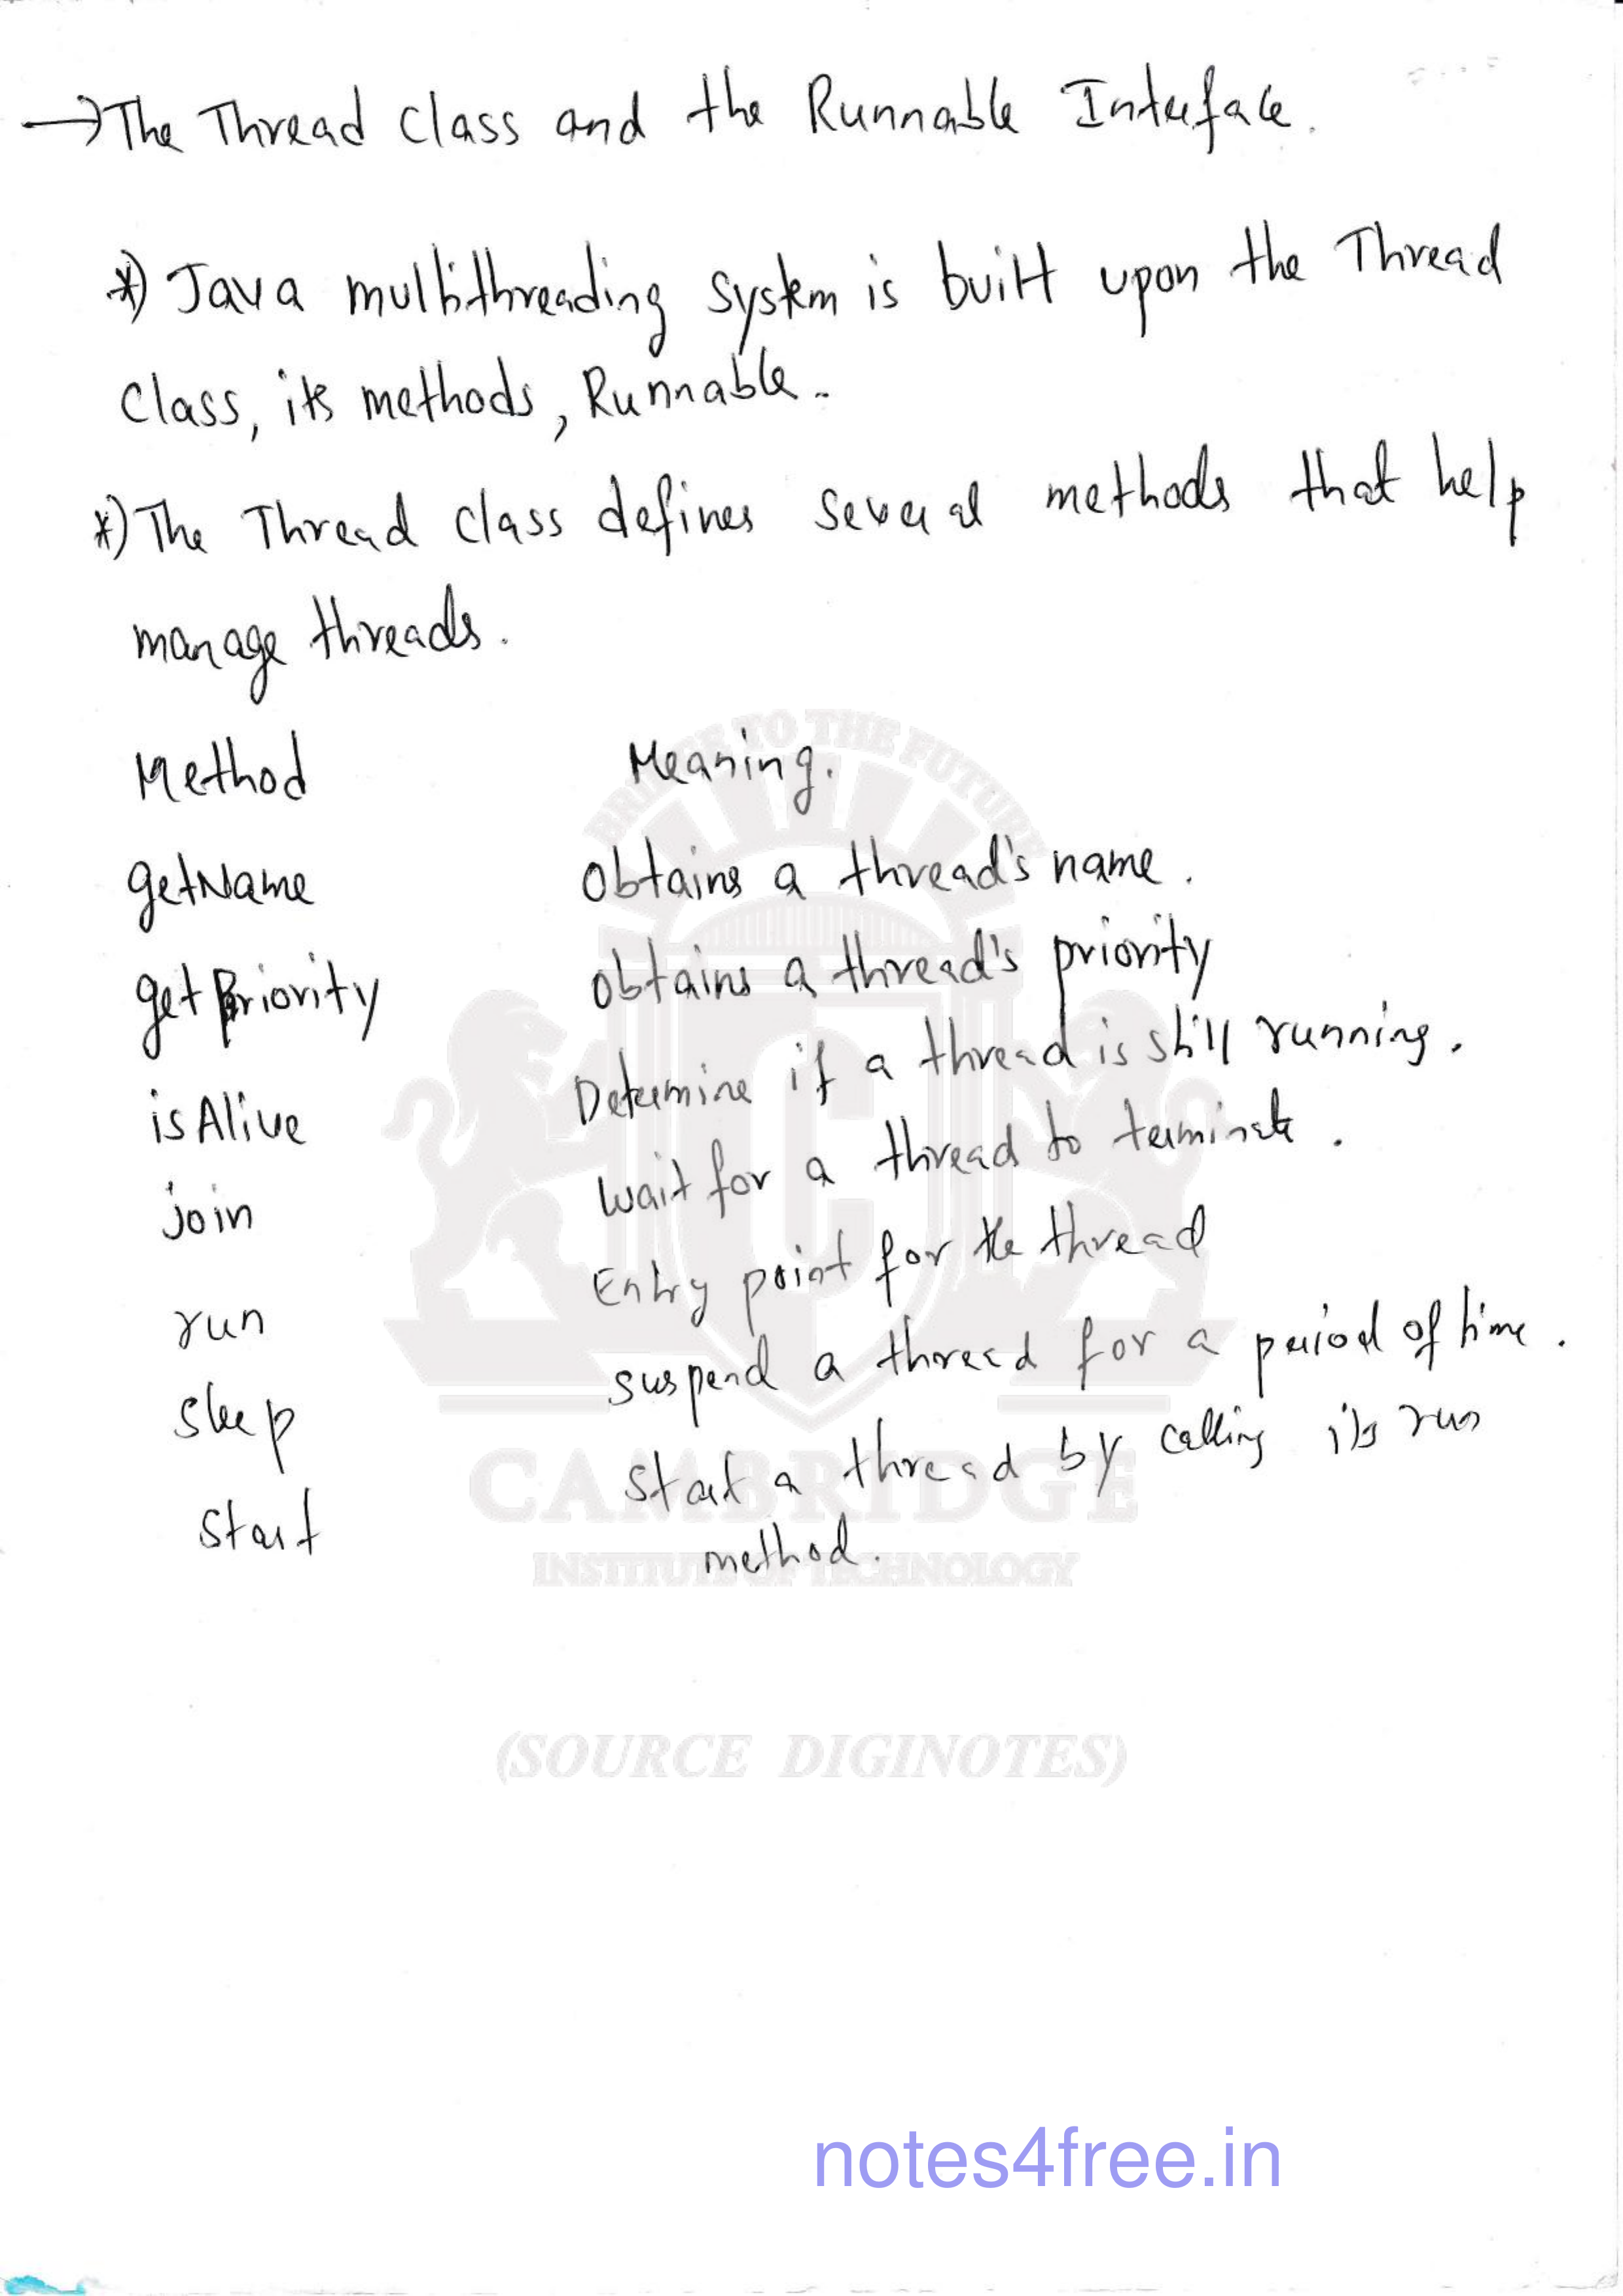 →The Thread class and the Runnable Interface.
*) Java multithreading system is built upon the Thread
class, its methods, Runnable.
*) The Thread class defines several methods that help
manage threads.
Method Meaning.
getName obtains a thread's name.
getPriority obtains a thread's priority
isAlive Determine if a thread is still running.
join wait for a thread to terminate.
run Entry point for the thread
sleep suspend a thread for a period of time.
start start a thread by calling its run
method.
BRIDGE TO THE FUTURE
C
CAMBRIDGE
INSTITUTE OF TECHNOLOGY
(SOURCE DIGINOTES)
notes4free.in